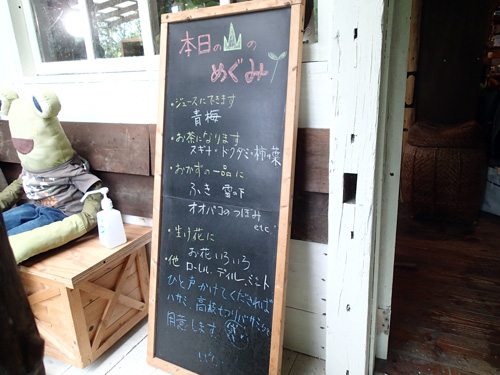 本日の山の
めぐみ
・ジュースにできます
青梅
・お茶になります
スギナ・ドクダミ・柿の葉
・おかずの一品に
ふき 雪の下
オオバコのつぼみ
etc
・生け花に
お花いろいろ
・他 ローレル、ディル、ミント
ひと声かけてくだされば
ハサミ、高枝切りバサミなど
用意します。